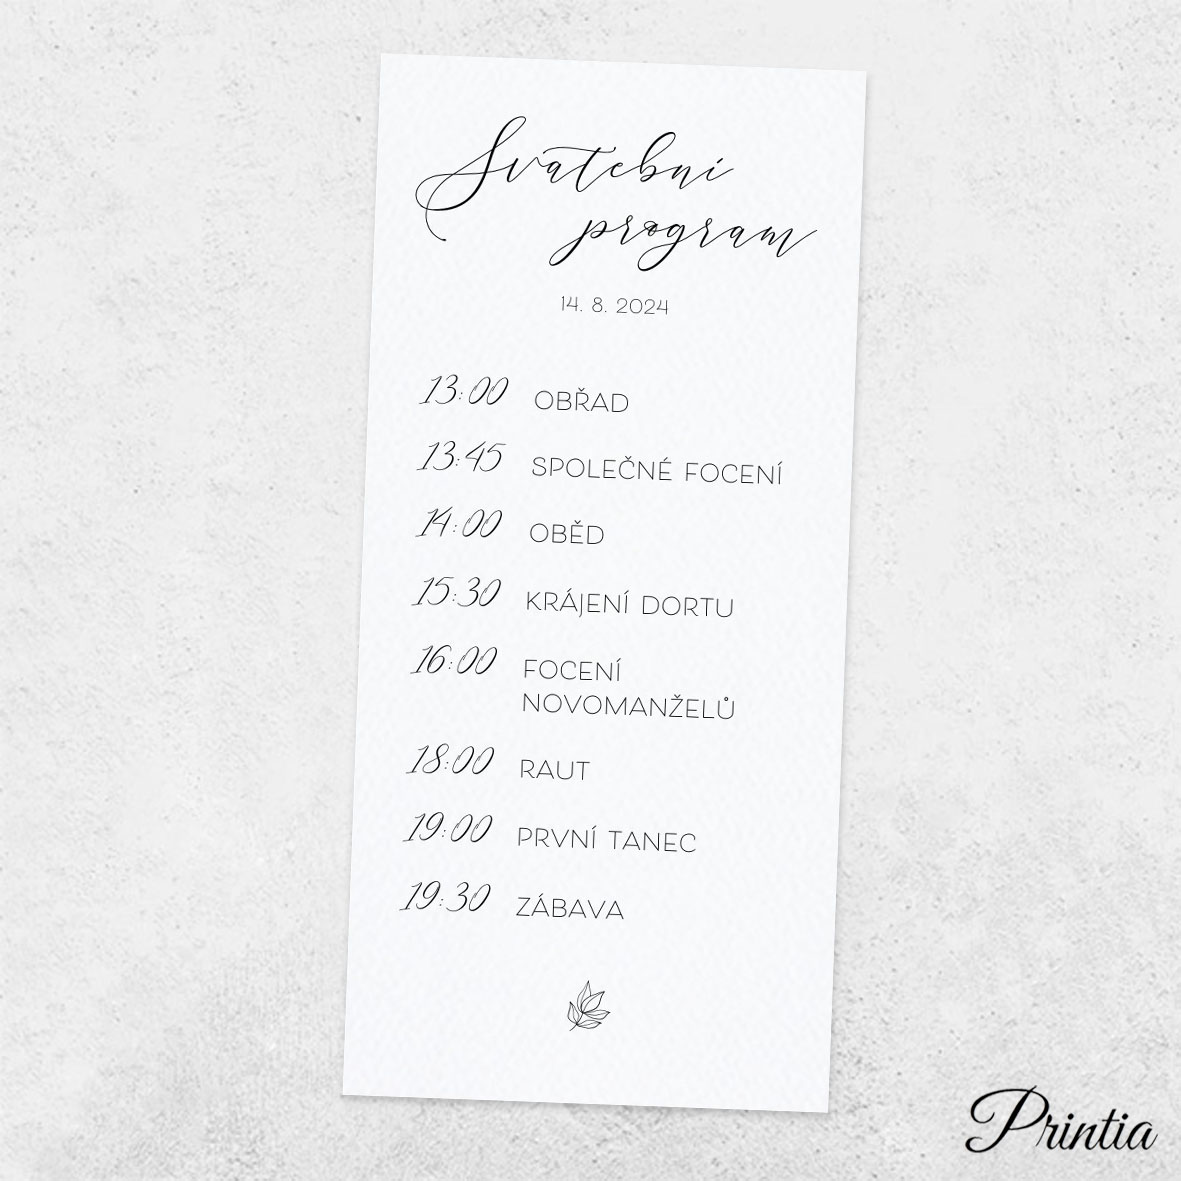 Svatební
program
14. 8. 2024
13:00 OBŘAD
13:45 SPOLEČNÉ FOCENÍ
14:00 OBĚD
15:30 KRÁJENÍ DORTU
16:00 FOCENÍ
NOVOMANŽELŮ
18:00 RAUT
19:00 PRVNÍ TANEC
19:30 ZÁBAVA
Printia